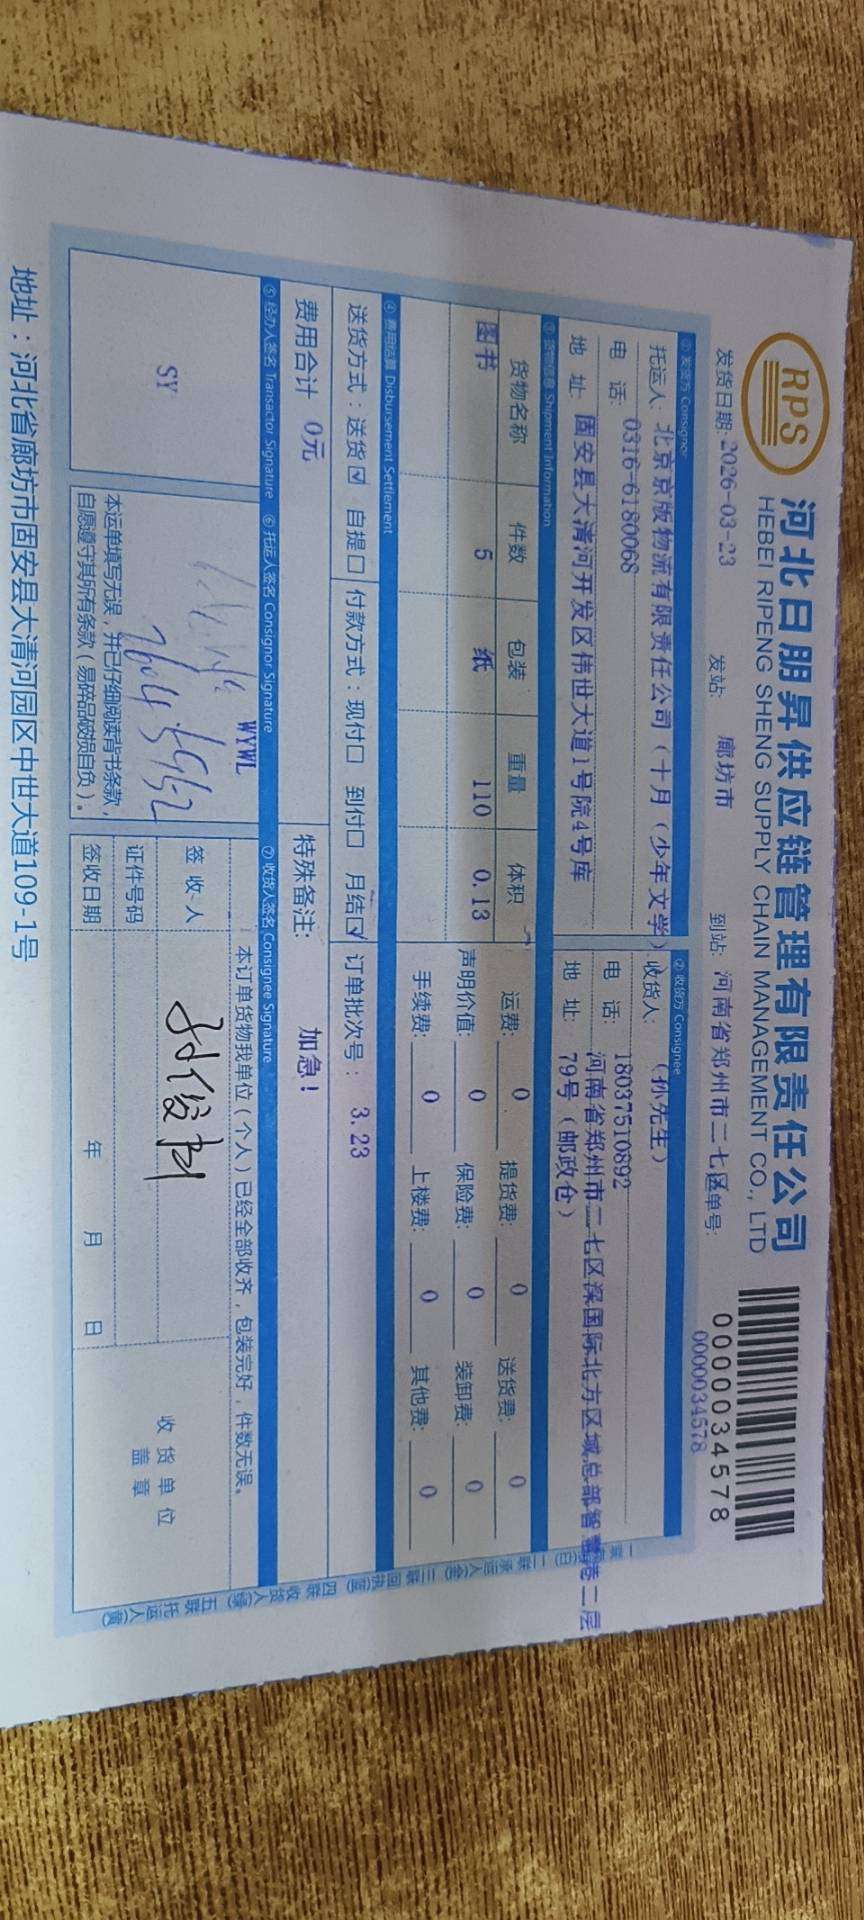 RPS
河北日朋昇供应链管理有限责任公司
HEBEI RIPENG SHENG SUPPLY CHAIN MANAGEMENT CO., LTD
0000034578
发货日期: 2026-03-23 发站: 廊坊市 到站: 河南省郑州市二七区 单号: 0000034578
① 发货方 Consignor ② 收货方 Consignee
托运人: 北京京版物流有限责任公司（十月（少年文学） 收货人: （孙先生）
电 话: 0316-6180068 电 话: 18037510892
地 址: 固安县大清河开发区伟世大道1号院4号库 地 址: 河南省郑州市二七区深国际北方区域总部智慧港二层
79号（邮政仓）
③ 货物信息 Shipment Information
货物名称 件数 包装 重量 体积 运费: 0 提货费: 0 送货费: 0
图书 5 纸 110 0.13 声明价值: 0 保险费: 0 装卸费: 0
手续费: 0 上楼费: 0 其他费: 0
④ 费用结算 Disbursement Settlement
送货方式：送货☑ 自提□ 付款方式：现付□ 到付□ 月结☑ 订单批次号： 3.23
费用合计 0元 特殊备注: 加急！
⑤ 经办人签名 Transactor Signature ⑥ 托运人签名 Consignor Signature ⑦ 收货人签名 Consignee Signature
SY
WYWL
本运单填写无误，并已仔细阅读背书条款，
自愿遵守其所有条款（易碎品破损自负）。
本订单货物我单位（个人）已经全部收齐，包装完好，件数无误。
签 收 人
证件号码
签收日期 年 月 日
收货单位
盖章
地址：河北省廊坊市固安县大清河园区中世大道109-1号